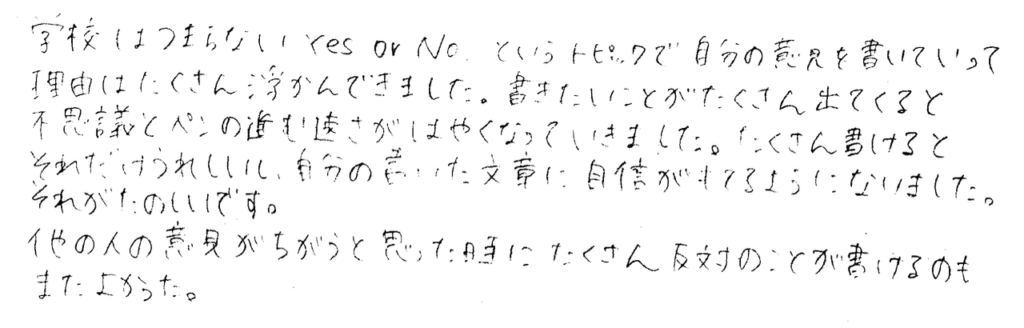 学校はつまらない Yes or No. というトピックで自分の意見を書いていって
理由はたくさん浮かんできました。書きたいことがたくさん出てくると
不思議とペンの進む速さがはやくなっていきました。たくさん書けると
それだけうれしいし、自分の書いた文章に自信がもてるようになりました。
それがたのしいです。
他の人の意見がちがうと思った時にたくさん反対のことが書けるのも
またよかった。